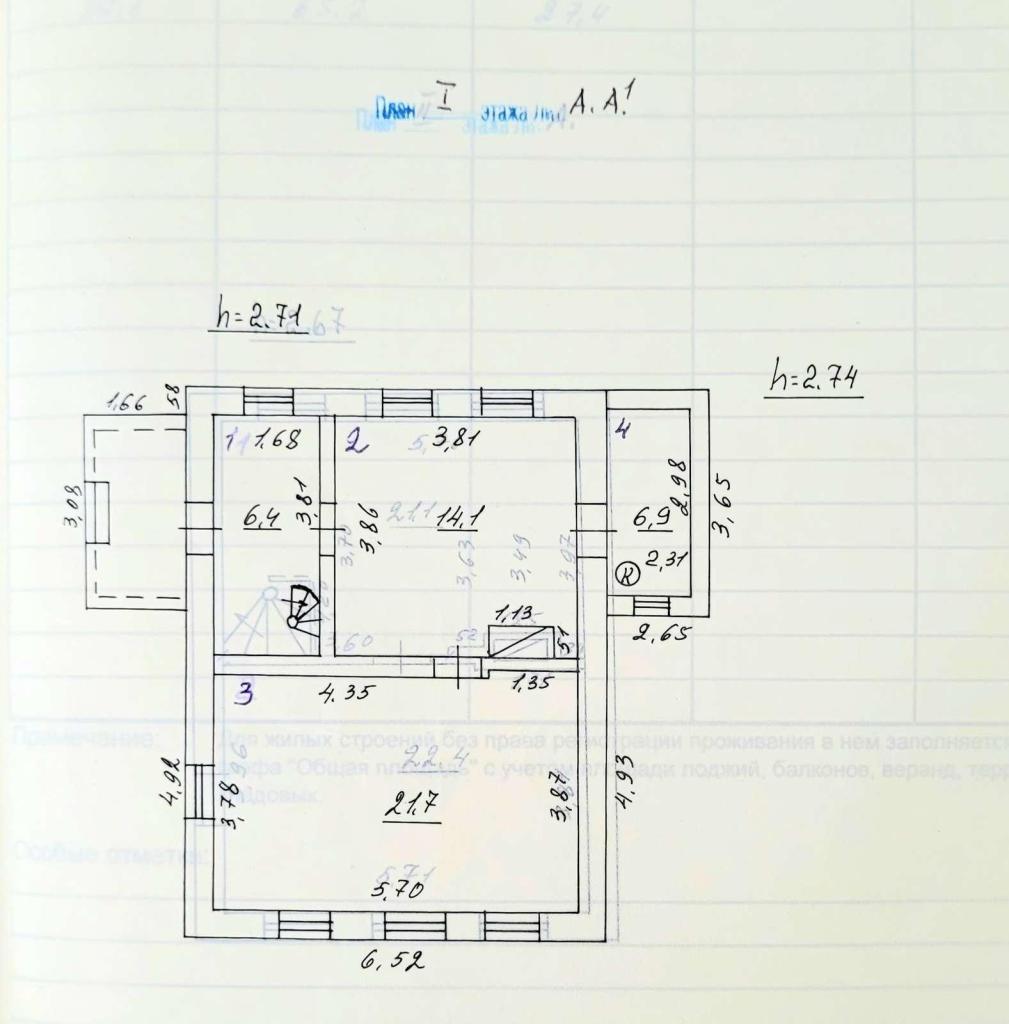 План I этажа лит А. А¹
h=2.71
h=2.74
1,66
58
1
1,68
2
3,81
4
3,08
6,4
3,81
3,86
14,1
6,9
2,98
3,65
2,31
К
2,65
1,13
51
3
4.35
1,35
4,92
3,78
21,7
3,87
4,93
5,70
6,52
Примечание:
Для жилых строений без права регистрации проживания в нем заполняется
графа "Общая площадь" с учетом площади лоджий, балконов, веранд, терр
Особые отметки: